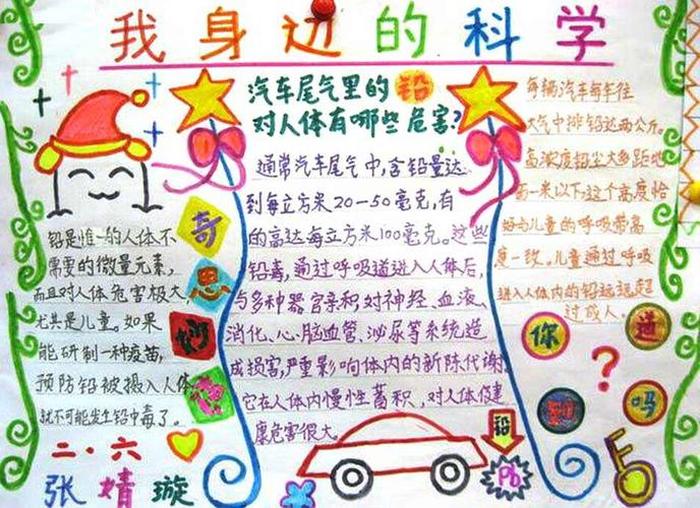 我身边的科学
铅是惟一的人体不
需要的微量元素,
而且对人体危害极大,
尤其是儿童。如果
能研制一种疫苗,
预防铅被摄入人体
就不可能发生铅中毒了。
二·六
张婧璇
奇
思
妙
想
汽车尾气里的铅
对人体有哪些危害?
通常汽车尾气中,含铅量达
到每立方米20-50毫克,有
的高达每立方米100毫克。这些
铅毒,通过呼吸道进入人体后,
与多种器官亲积,对神经、血液、
消化、心、脑血管、泌尿等系统造
成损害,严重影响体内的新陈代谢。
它在人体内慢性蓄积,对人体健
康危害很大。
铅
Pb
每辆汽车每年往
大气中排铅达两公斤。
高浓度铅尘大多距地
面一米以下,这个高度恰
好与儿童的呼吸带高
度一致。儿童通过呼吸
进入人体内的铅远远超
过成人。
你
知
道
吗
?